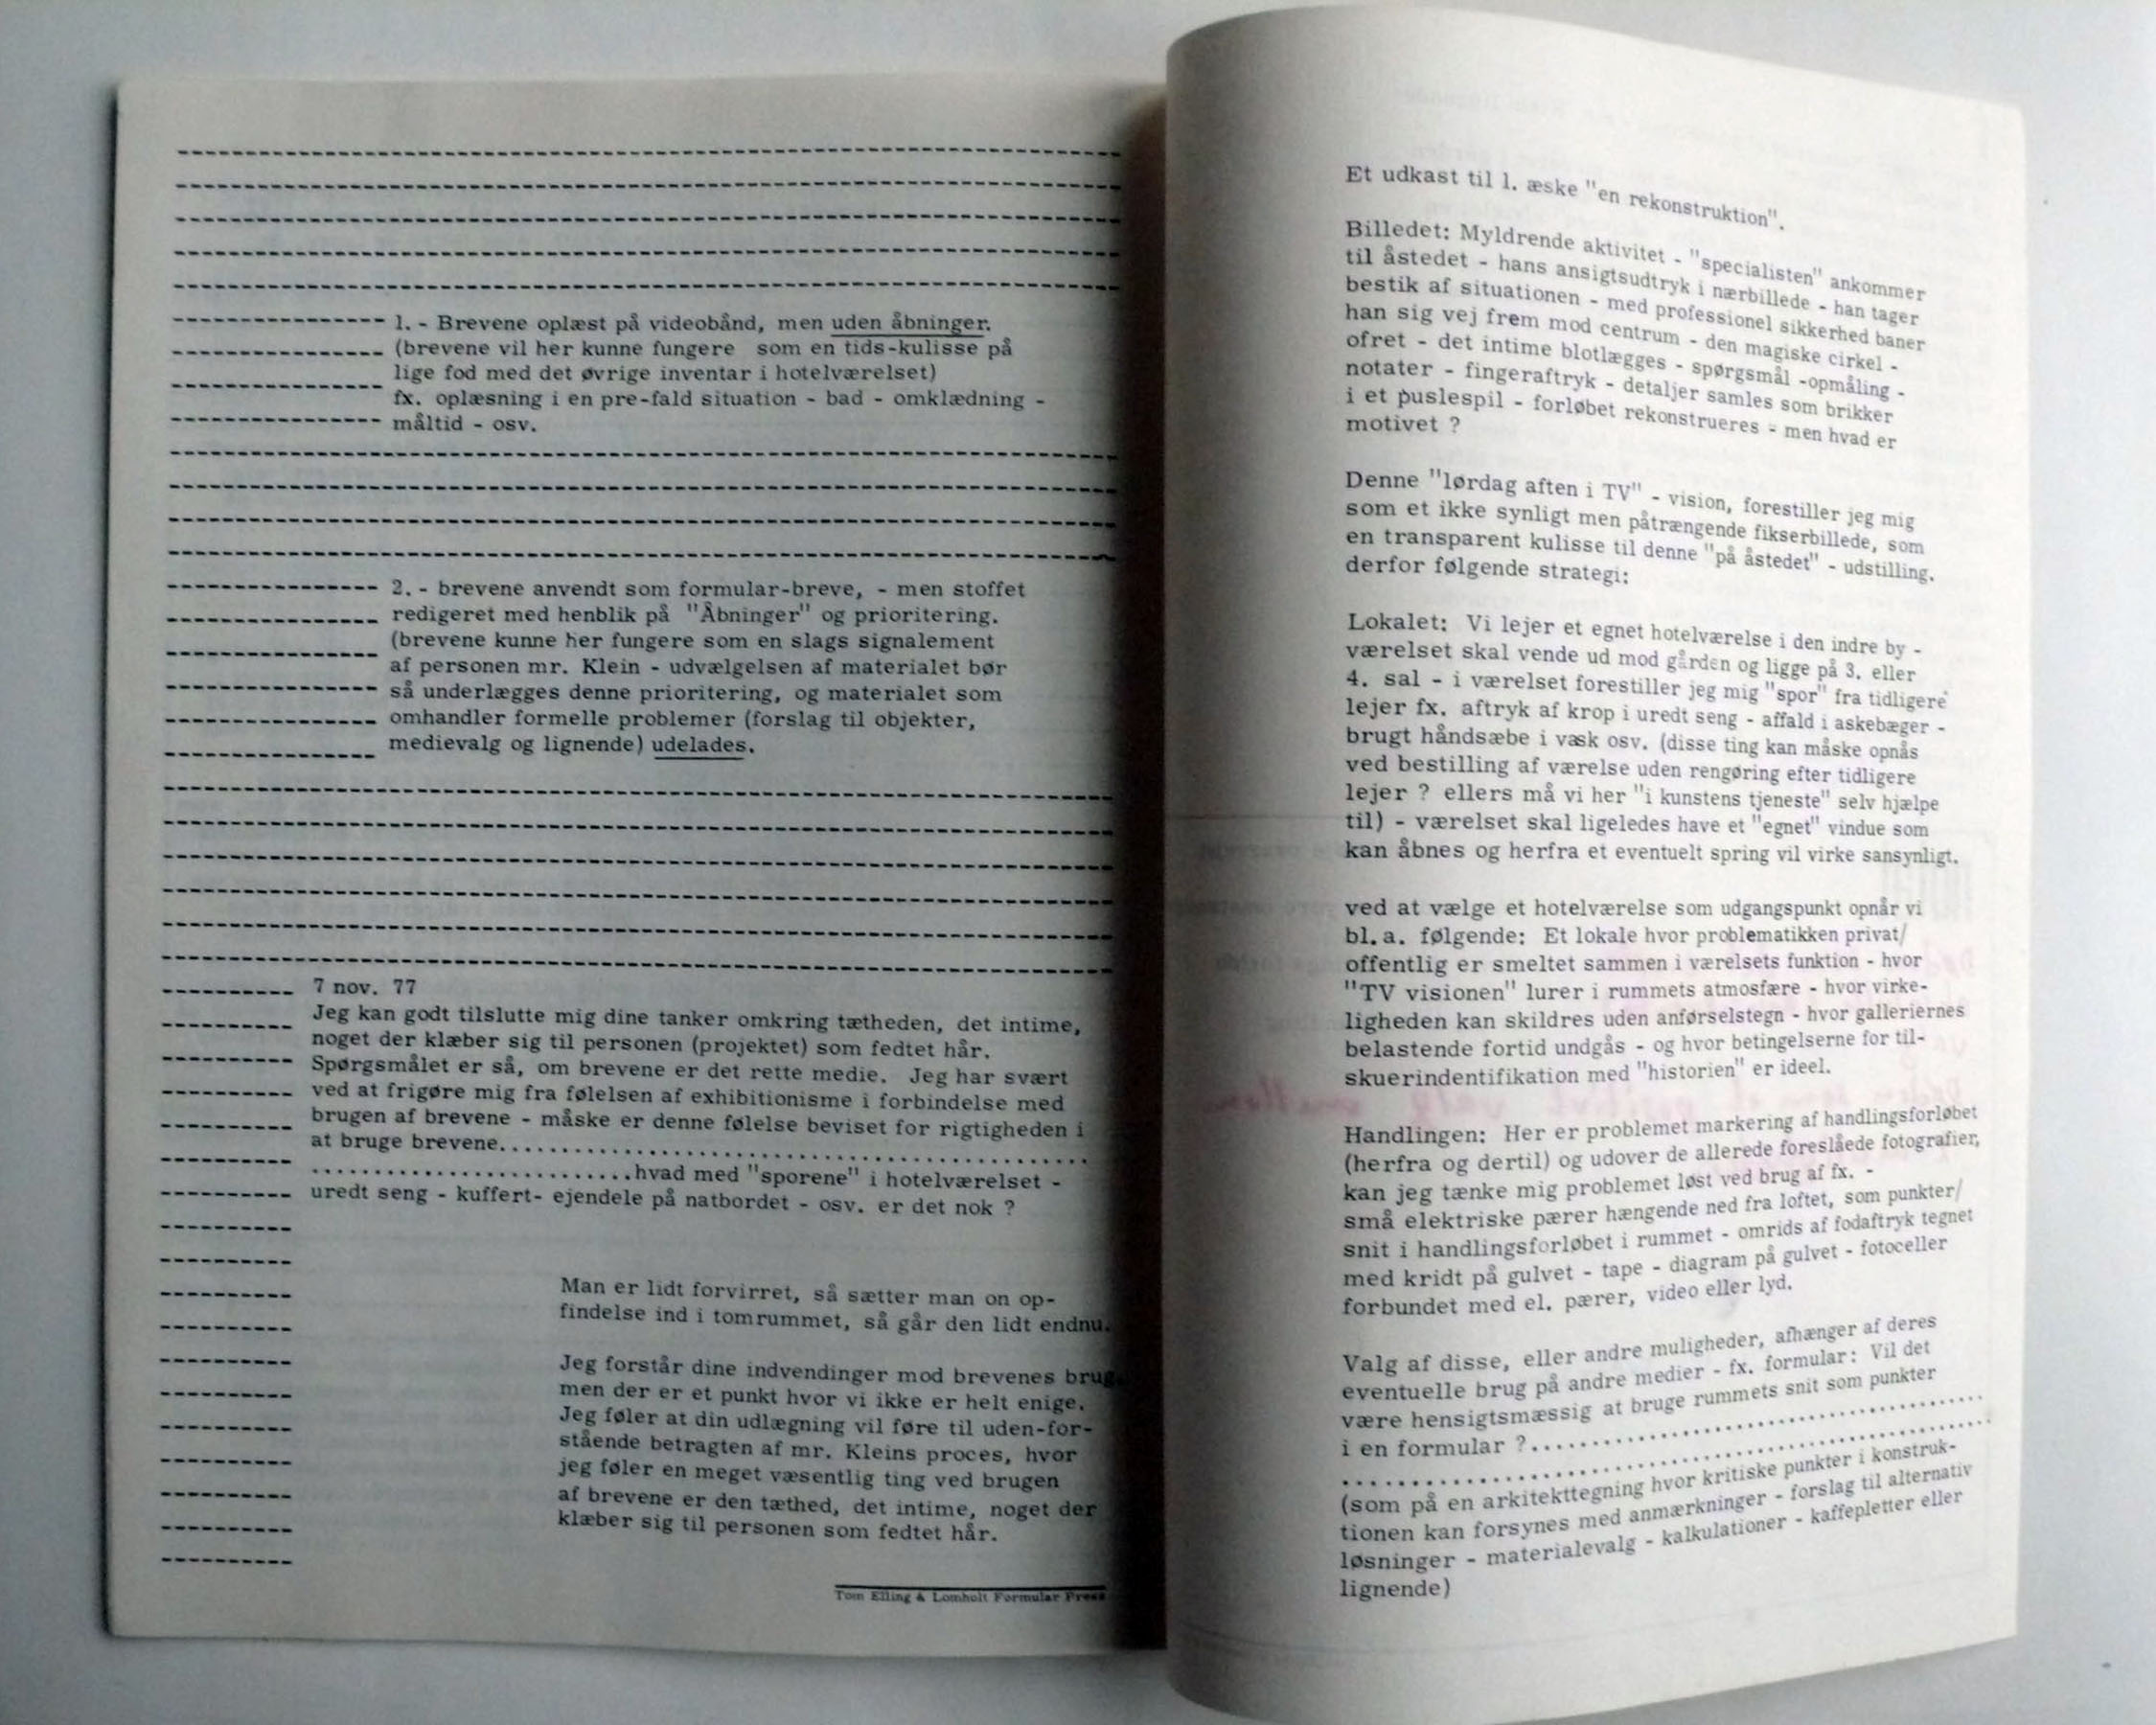 1. - Brevene oplæst på videobånd, men uden åbninger.
(brevene vil her kunne fungere som en tids-kulisse på
lige fod med det øvrige inventar i hotelværelset)
fx. oplæsning i en pre-fald situation - bad - omklædning -
måltid - osv.
2. - brevene anvendt som formular-breve, - men stoffet
redigeret med henblik på "Åbninger" og prioritering.
(brevene kunne her fungere som en slags signalement
af personen mr. Klein - udvælgelsen af materialet bør
så underlægges denne prioritering, og materialet som
omhandler formelle problemer (forslag til objekter,
medievalg og lignende) udelades.
7 nov. 77
Jeg kan godt tilslutte mig dine tanker omkring tætheden, det intime,
noget der klæber sig til personen (projektet) som fedtet hår.
Spørgsmålet er så, om brevene er det rette medie. Jeg har svært
ved at frigøre mig fra følelsen af exhibitionisme i forbindelse med
brugen af brevene - måske er denne følelse beviset for rigtigheden i
at bruge brevene..........................................
.........................hvad med "sporene" i hotelværelset -
uredt seng - kuffert- ejendele på natbordet - osv. er det nok ?
Man er lidt forvirret, så sætter man on op-
findelse ind i tomrummet, så går den lidt endnu.
Jeg forstår dine indvendinger mod brevenes brug,
men der er et punkt hvor vi ikke er helt enige.
Jeg føler at din udlægning vil føre til uden-for-
stående betragten af mr. Kleins proces, hvor
jeg føler en meget væsentlig ting ved brugen
af brevene er den tæthed, det intime, noget der
klæber sig til personen som fedtet hår.
Tom Elling & Lomholt Formular Press
Et udkast til 1. æske "en rekonstruktion".
Billedet: Myldrende aktivitet - "specialisten" ankommer
til åstedet - hans ansigtsudtryk i nærbillede - han tager
bestik af situationen - med professionel sikkerhed baner
han sig vej frem mod centrum - den magiske cirkel -
ofret - det intime blotlægges - spørgsmål -opmåling -
notater - fingeraftryk - detaljer samles som brikker
i et puslespil - forløbet rekonstrueres - men hvad er
motivet ?
Denne "lørdag aften i TV" - vision, forestiller jeg mig
som et ikke synligt men påtrængende fikserbillede, som
en transparent kulisse til denne "på åstedet" - udstilling.
derfor følgende strategi:
Lokalet: Vi lejer et egnet hotelværelse i den indre by -
værelset skal vende ud mod gården og ligge på 3. eller
4. sal - i værelset forestiller jeg mig "spor" fra tidligere
lejer fx. aftryk af krop i uredt seng - affald i askebæger -
brugt håndsæbe i vask osv. (disse ting kan måske opnås
ved bestilling af værelse uden rengøring efter tidligere
lejer ? ellers må vi her "i kunstens tjeneste" selv hjælpe
til) - værelset skal ligeledes have et "egnet" vindue som
kan åbnes og herfra et eventuelt spring vil virke sansynligt.
ved at vælge et hotelværelse som udgangspunkt opnår vi
bl. a. følgende: Et lokale hvor problematikken privat/
offentlig er smeltet sammen i værelsets funktion - hvor
"TV visionen" lurer i rummets atmosfære - hvor virke-
ligheden kan skildres uden anførselstegn - hvor galleriernes
belastende fortid undgås - og hvor betingelserne for til-
skuerindentifikation med "historien" er ideel.
Handlingen: Her er problemet markering af handlingsforløbet
(herfra og dertil) og udover de allerede foreslåede fotografier,
kan jeg tænke mig problemet løst ved brug af fx. -
små elektriske pærer hængende ned fra loftet, som punkter/
snit i handlingsforløbet i rummet - omrids af fodaftryk tegnet
med kridt på gulvet - tape - diagram på gulvet - fotoceller
forbundet med el. pærer, video eller lyd.
Valg af disse, eller andre muligheder, afhænger af deres
eventuelle brug på andre medier - fx. formular: Vil det
være hensigtsmæssig at bruge rummets snit som punkter
i en formular ?...................................
..................................................
(som på en arkitekttegning hvor kritiske punkter i konstruk-
tionen kan forsynes med anmærkninger - forslag til alternativ
løsninger - materialevalg - kalkulationer - kaffepletter eller
lignende)